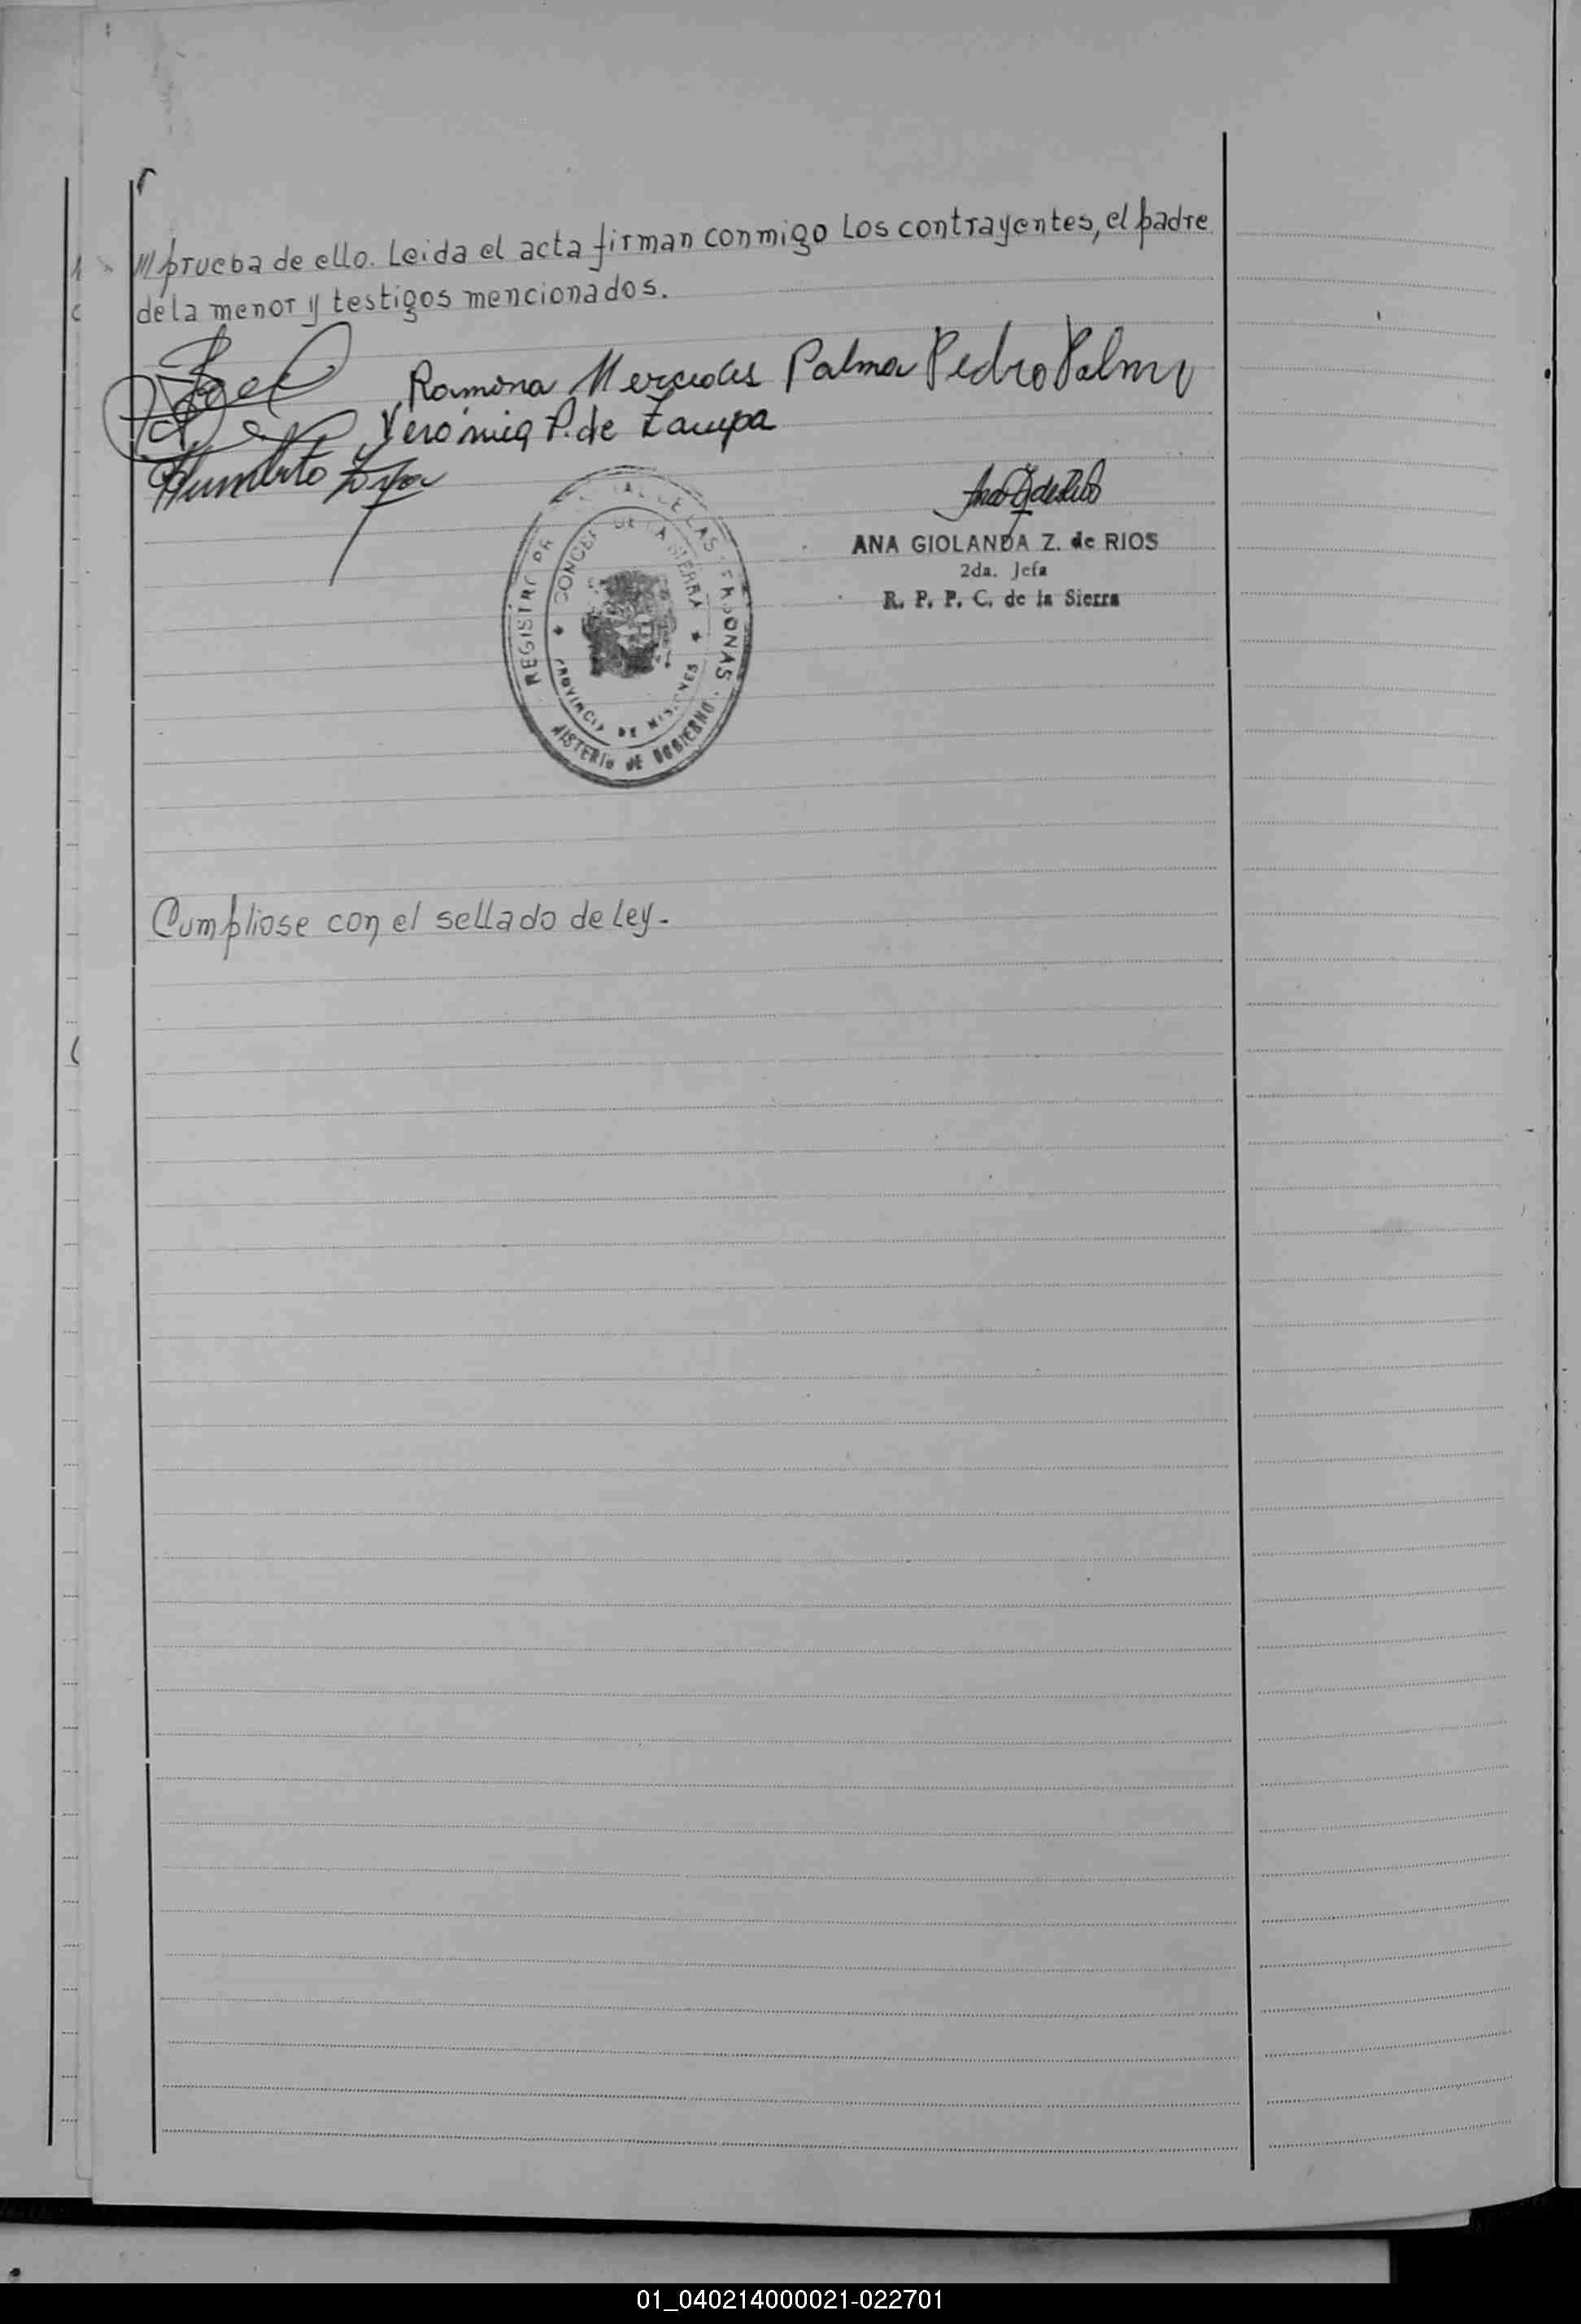 /// prueba de ello. Leida el acta firman conmigo Los contrayentes, el padre
de la menor y testigos mencionados.
Ramona Mercedes Palma Pedro Palma
Verónica P. de Zampa
Humberto
REGISTRO DE LAS PERSONAS
CONCEP DE LA SIERRA
PROVINCIA DE MISIONES
MINISTERIO DE GOBIERNO
ANA GIOLANDA Z. de RIOS
2da. Jefa
R. P. P. C. de la Sierra
Cumpliose con el sellado de Ley.-
01_040214000021-022701